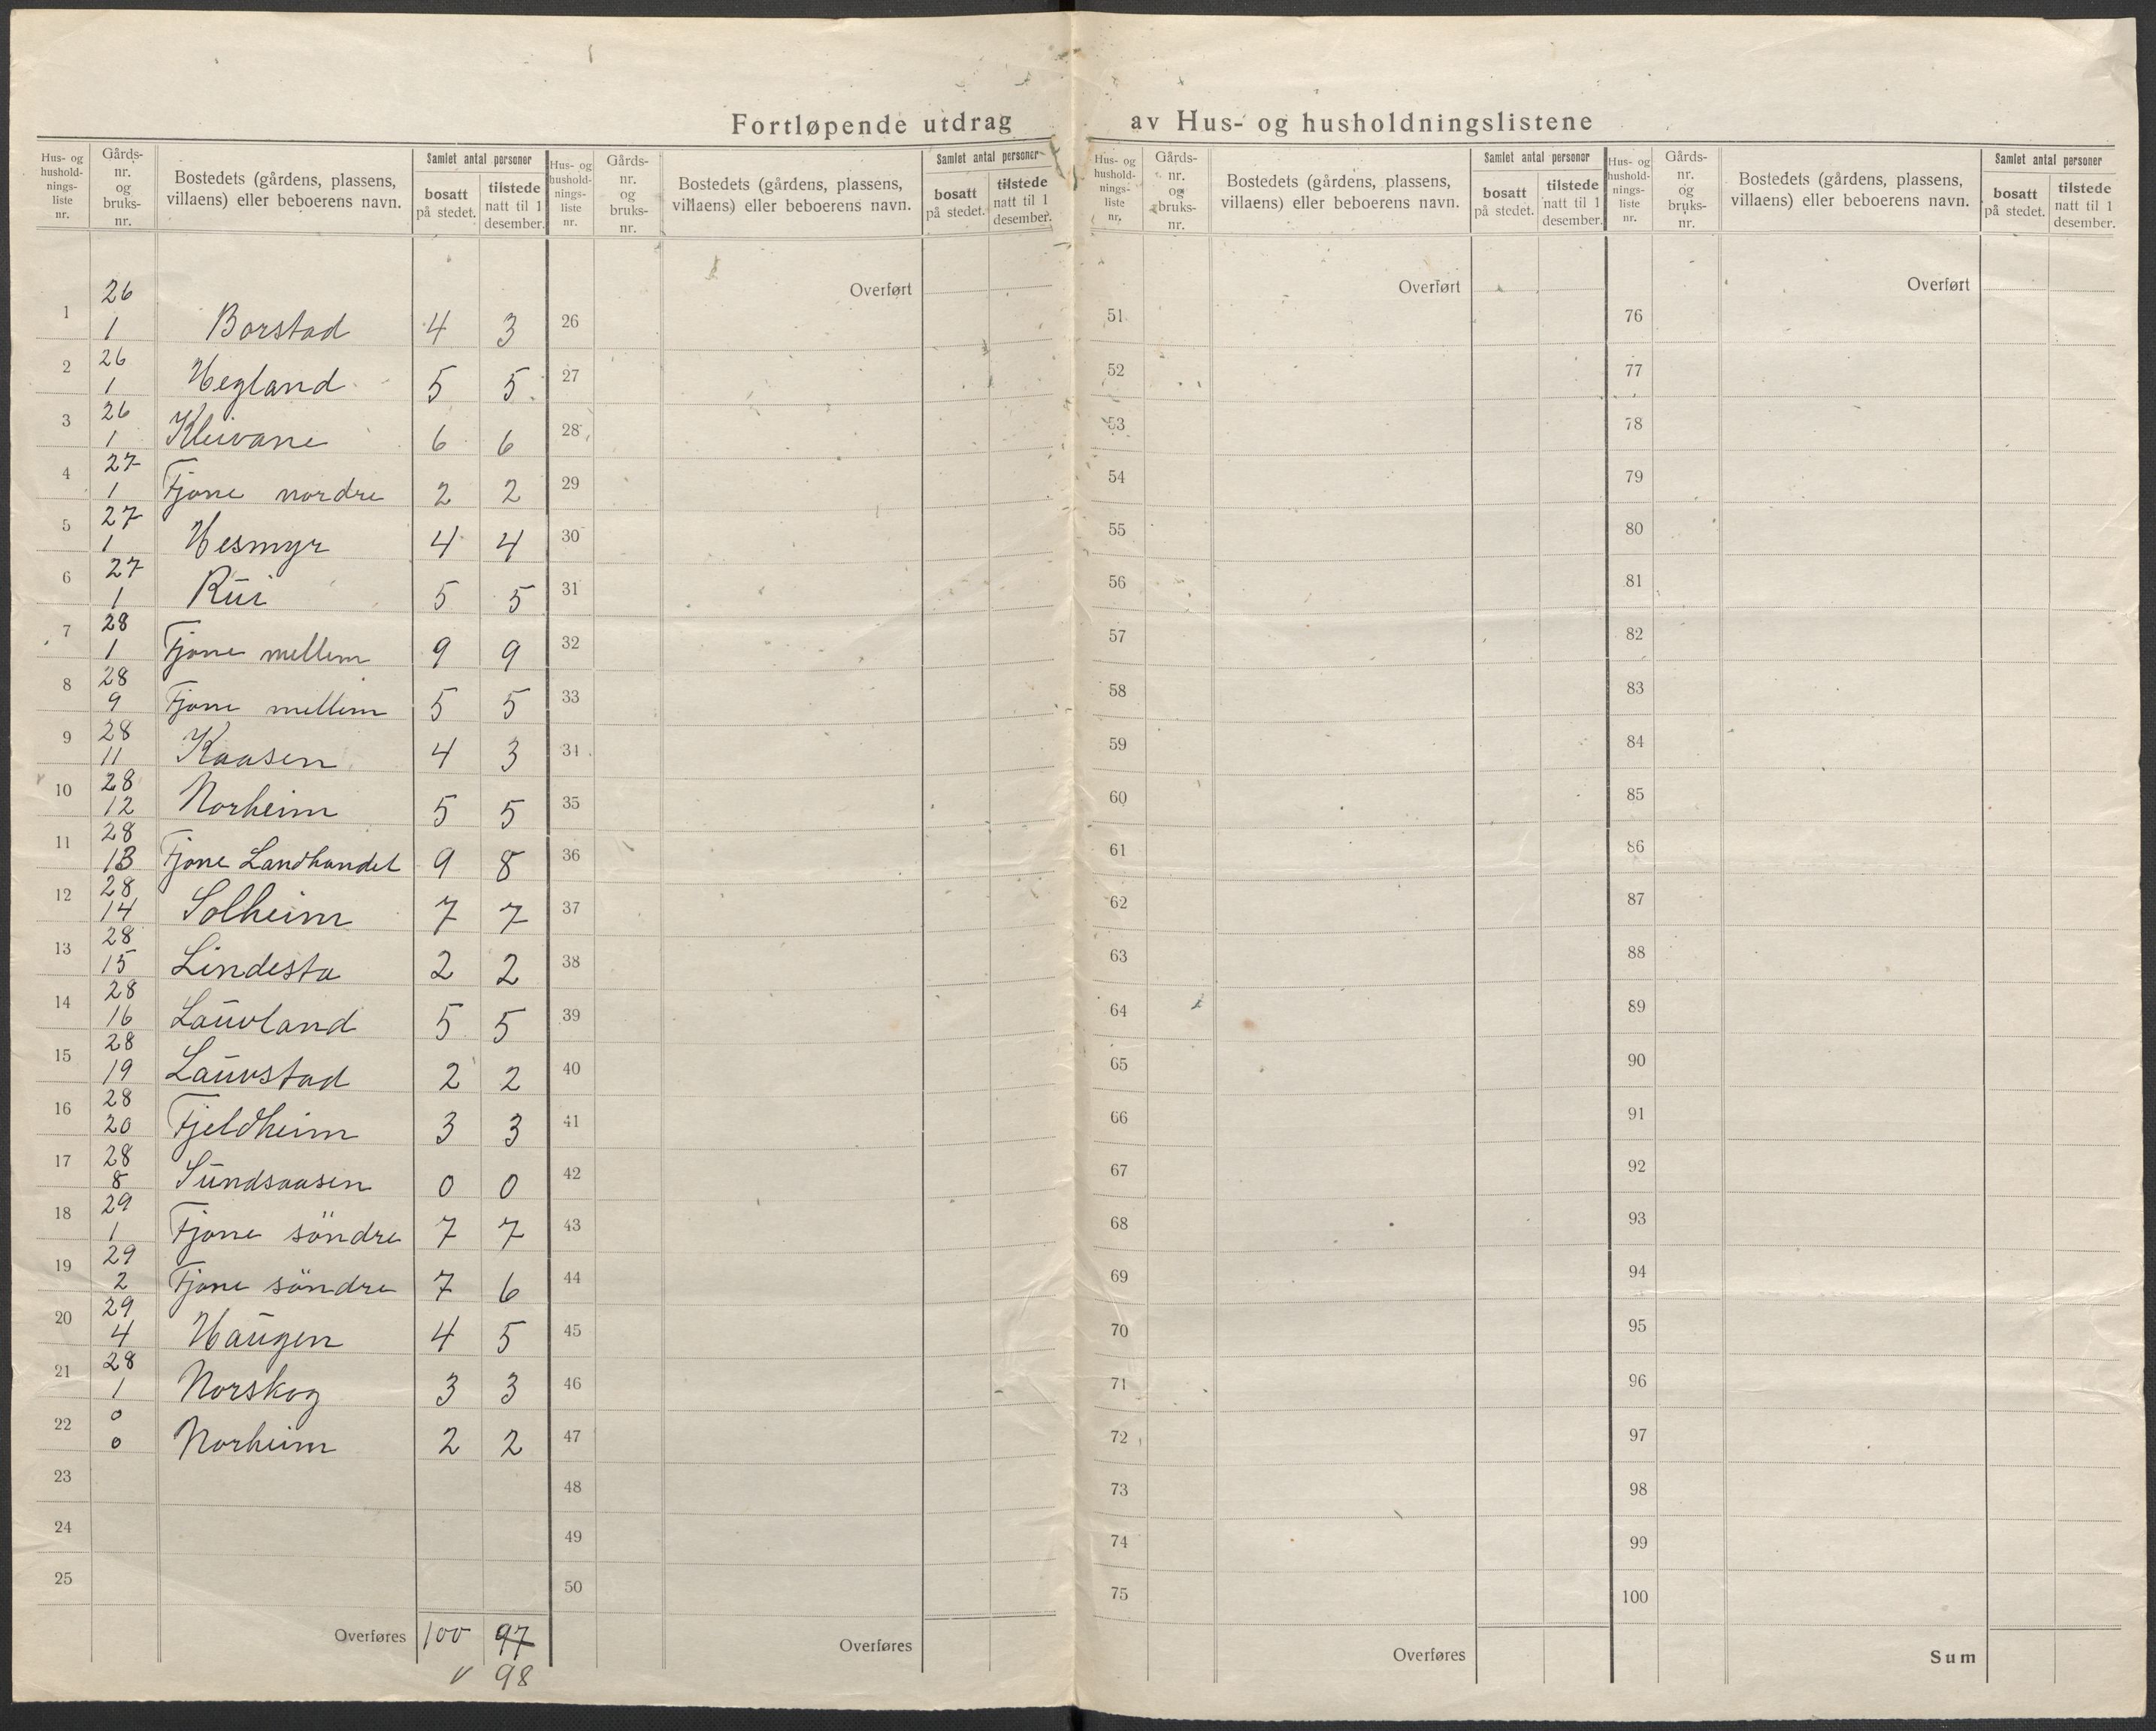 Fortløpende utdrag av Hus- og husholdningslistene
Hus- og hushold-nings-liste nr. Gårds-nr. og bruks-nr. Bostedets (gårdens, plassens, villaens) eller beboerens navn. Samlet antal personer bosatt på stedet. tilstede natt til 1 desember.
1 26 1 Borstad 4 3
2 26 1 Hegland 5 5
3 26 1 Kleivane 6 6
4 27 1 Fjone nordre 2 2
5 27 1 Hesmyr 4 4
6 27 1 Rui 5 5
7 28 1 Fjone mellem 9 9
8 28 9 Fjone mellem 5 5
9 28 11 Kaasen 4 3
10 28 12 Norheim 5 5
11 28 13 Fjone Landhandel 9 8
12 28 14 Solheim 7 7
13 28 15 Lindesta 2 2
14 28 16 Lauvland 5 5
15 28 19 Lauvstad 2 2
16 28 20 Fjeldheim 3 3
17 28 8 Sundsaasen 0 0
18 29 1 Fjone söndre 7 7
19 29 2 Fjone söndre 7 6
20 29 4 Haugen 4 5
21 28 1 Norskog 3 3
22 0 0 Norheim 2 2
23
24
25
Overføres 100 97
v 98
Hus- og hushold-nings-liste nr. Gårds-nr. og bruks-nr. Bostedets (gårdens, plassens, villaens) eller beboerens navn. Samlet antal personer bosatt på stedet. tilstede natt til 1 desember.
Overført
26
27
28
29
30
31
32
33
34
35
36
37
38
39
40
41
42
43
44
45
46
47
48
49
50
Overføres
Hus- og hushold-nings-liste nr. Gårds-nr. og bruks-nr. Bostedets (gårdens, plassens, villaens) eller beboerens navn. Samlet antal personer bosatt på stedet. tilstede natt til 1 desember.
Overført
51
52
53
54
55
56
57
58
59
60
61
62
63
64
65
66
67
68
69
70
71
72
73
74
75
Overføres
Hus- og hushold-nings-liste nr. Gårds-nr. og bruks-nr. Bostedets (gårdens, plassens, villaens) eller beboerens navn. Samlet antal personer bosatt på stedet. tilstede natt til 1 desember.
Overført
76
77
78
79
80
81
82
83
84
85
86
87
88
89
90
91
92
93
94
95
96
97
98
99
100
Sum